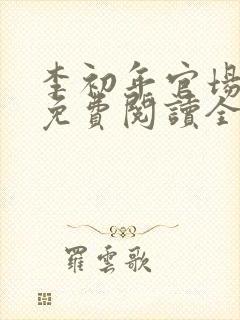 李初年官場
免費閱讀全
羅雲歌